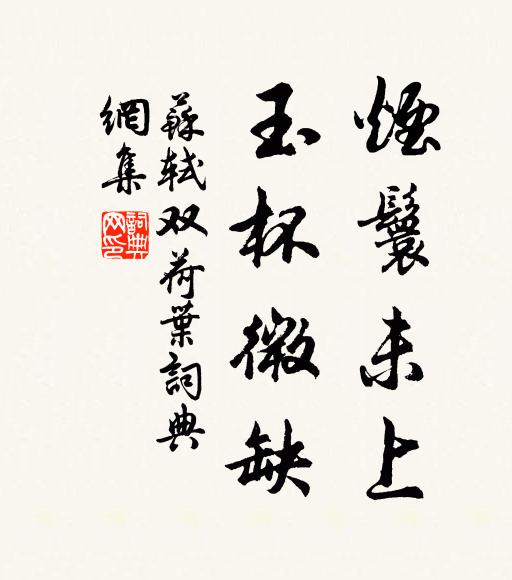 煙鬟未上
玉杯微缺
蘇軾双荷葉詞典
網集
詞典
网印